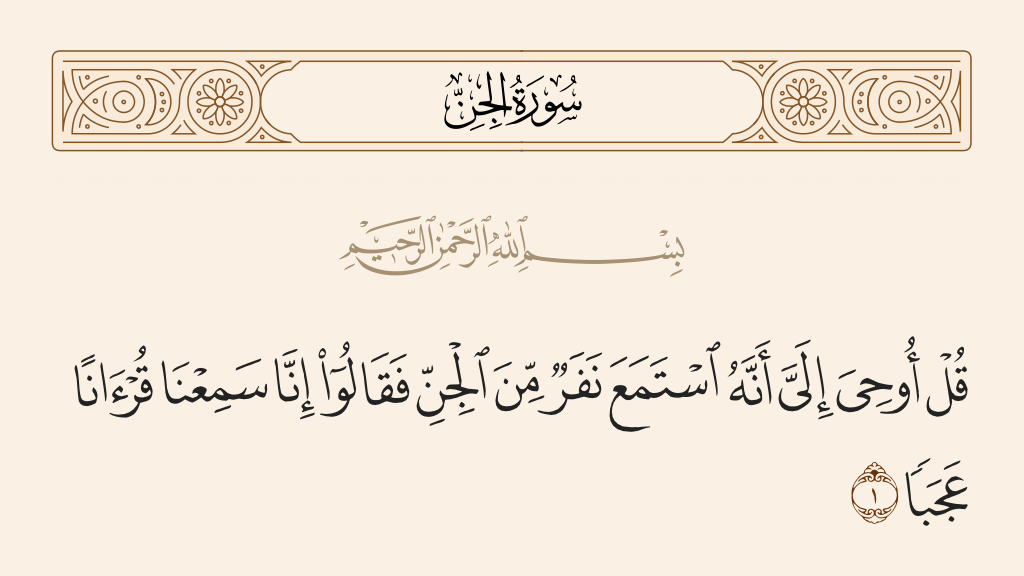 سُورَةُ الجِنِّ
بِسْمِ ٱللَّهِ ٱلرَّحْمَٰنِ ٱلرَّحِيمِ
قُلْ أُوحِىَ إِلَىَّ أَنَّهُ ٱسْتَمَعَ نَفَرٌ مِّنَ ٱلْجِنِّ فَقَالُوٓا۟ إِنَّا سَمِعْنَا قُرْءَانًا
عَجَبًا ١